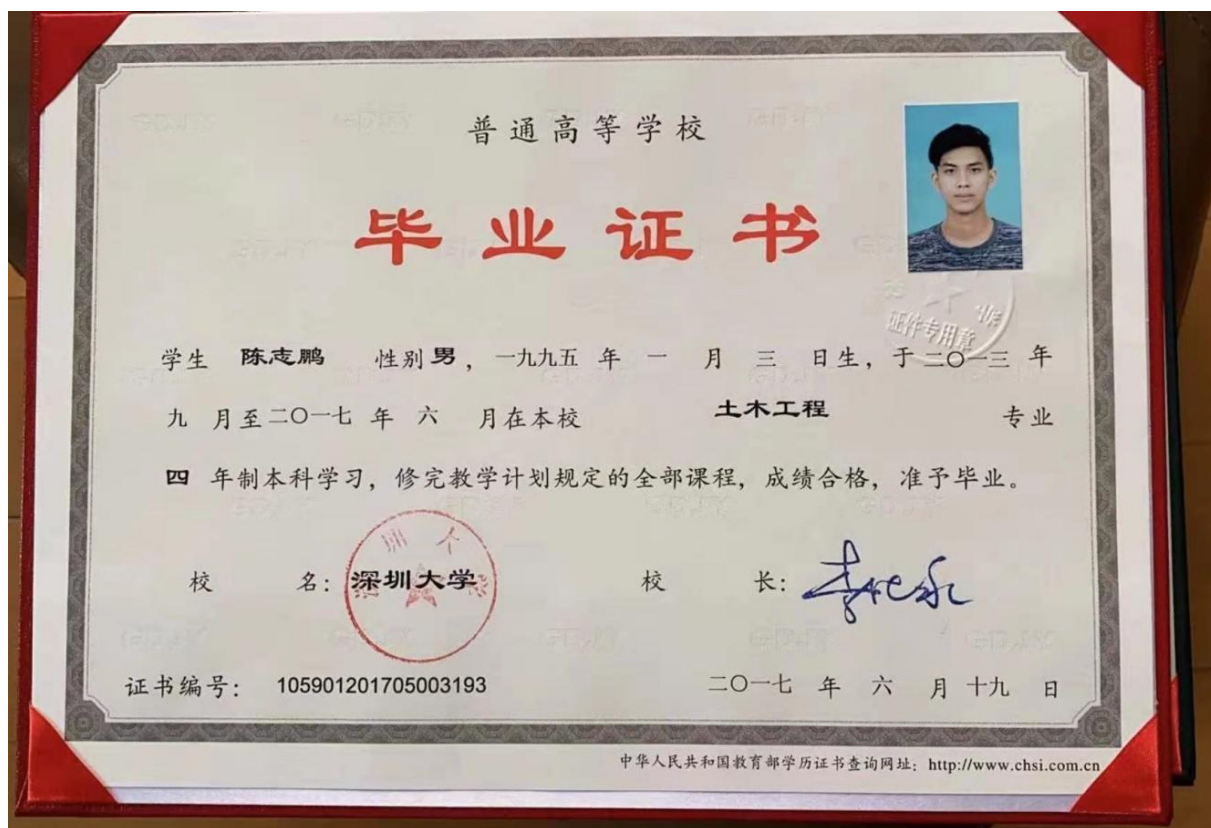 普通高等学校
毕业证书
证件专用章
学生 陈志鹏 性别 男 ，一九九五 年 一 月 三 日生，于 二〇一三 年
九 月至 二〇一七 年 六 月在本校 土木工程 专业
四 年制本科学习，修完教学计划规定的全部课程，成绩合格，准予毕业。
校 名：深圳大学 校 长：
证书编号： 105901201705003193 二〇一七 年 六 月 十九 日
中华人民共和国教育部学历证书查询网址：http://www.chsi.com.cn